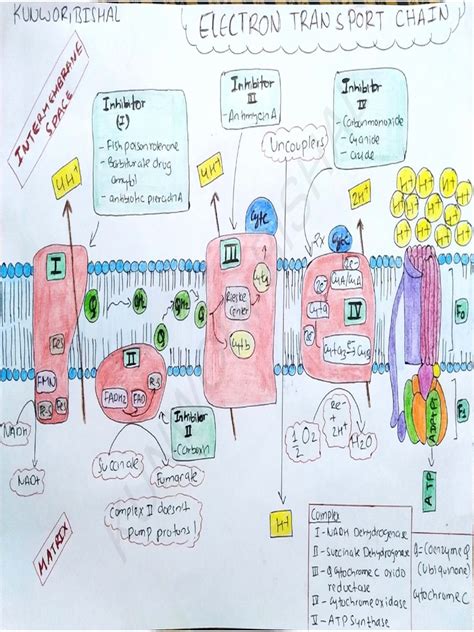 KUNWOR,BISHAL
ELECTRON TRANSPORT CHAIN
INTERMEMBRANE
SPACE
Inhibitor
(I)
- Fish poison rotenone
- Barbiturate drug
amytal
- antibiotic piercidin A
Inhibitor
III
- Antimycin A
Inhibitor
IV
- Carbonmonoxide
- Cyanide
- azide
Uncouplers
4H+
4H+
2H+
H+
H+
H+
H+
H+
H+
H+
H+
H+
I
Fes
FMN
Fes
NADH
NADH
Q
QH
Q
II
FADH2
FAD
Fes
Inhibitor
II
- Carboxin
Succinate
Fumarate
Complex II doesn't
pump protons!
III
CytC
Cyt c1
Rieske
Center
Cyt b
CytC
2e-
CuA/CuA
Cyt a
2e-
IV
Cyt a3
CuB
1/2 O2
2e-
+
2H+
H2O
H+
F0
F1
ADP+Pi
ATP
MATRIX
Complex
I - NADH Dehydrogenase
II - Succinate Dehydrogenase
III - Q Cytochrome C oxido
reductase
IV - Cytochrome oxidase
V - ATP Synthase
Q = Coenzyme Q
(Ubiquinone)
Cytochrome C